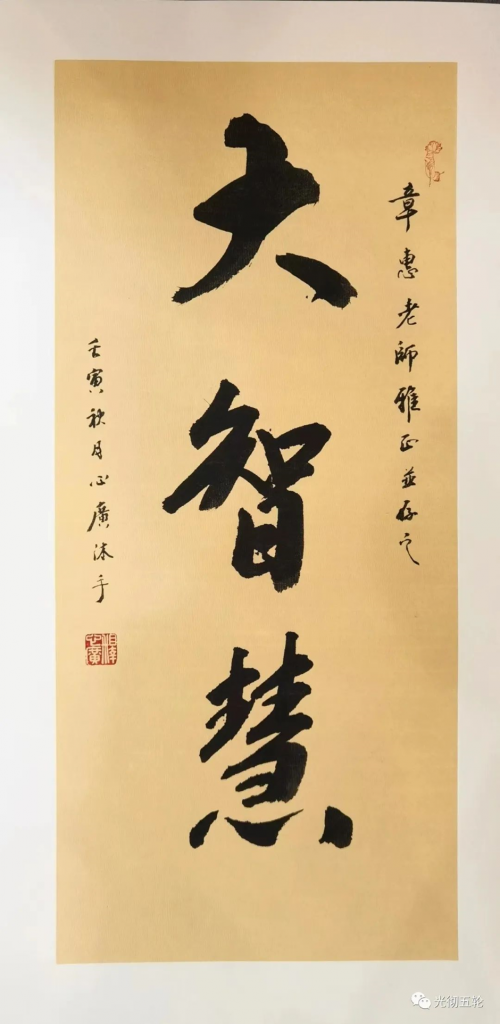 章惠老師雅正並存之
大智慧
壬寅秋月心廣沐手
光彻五轮